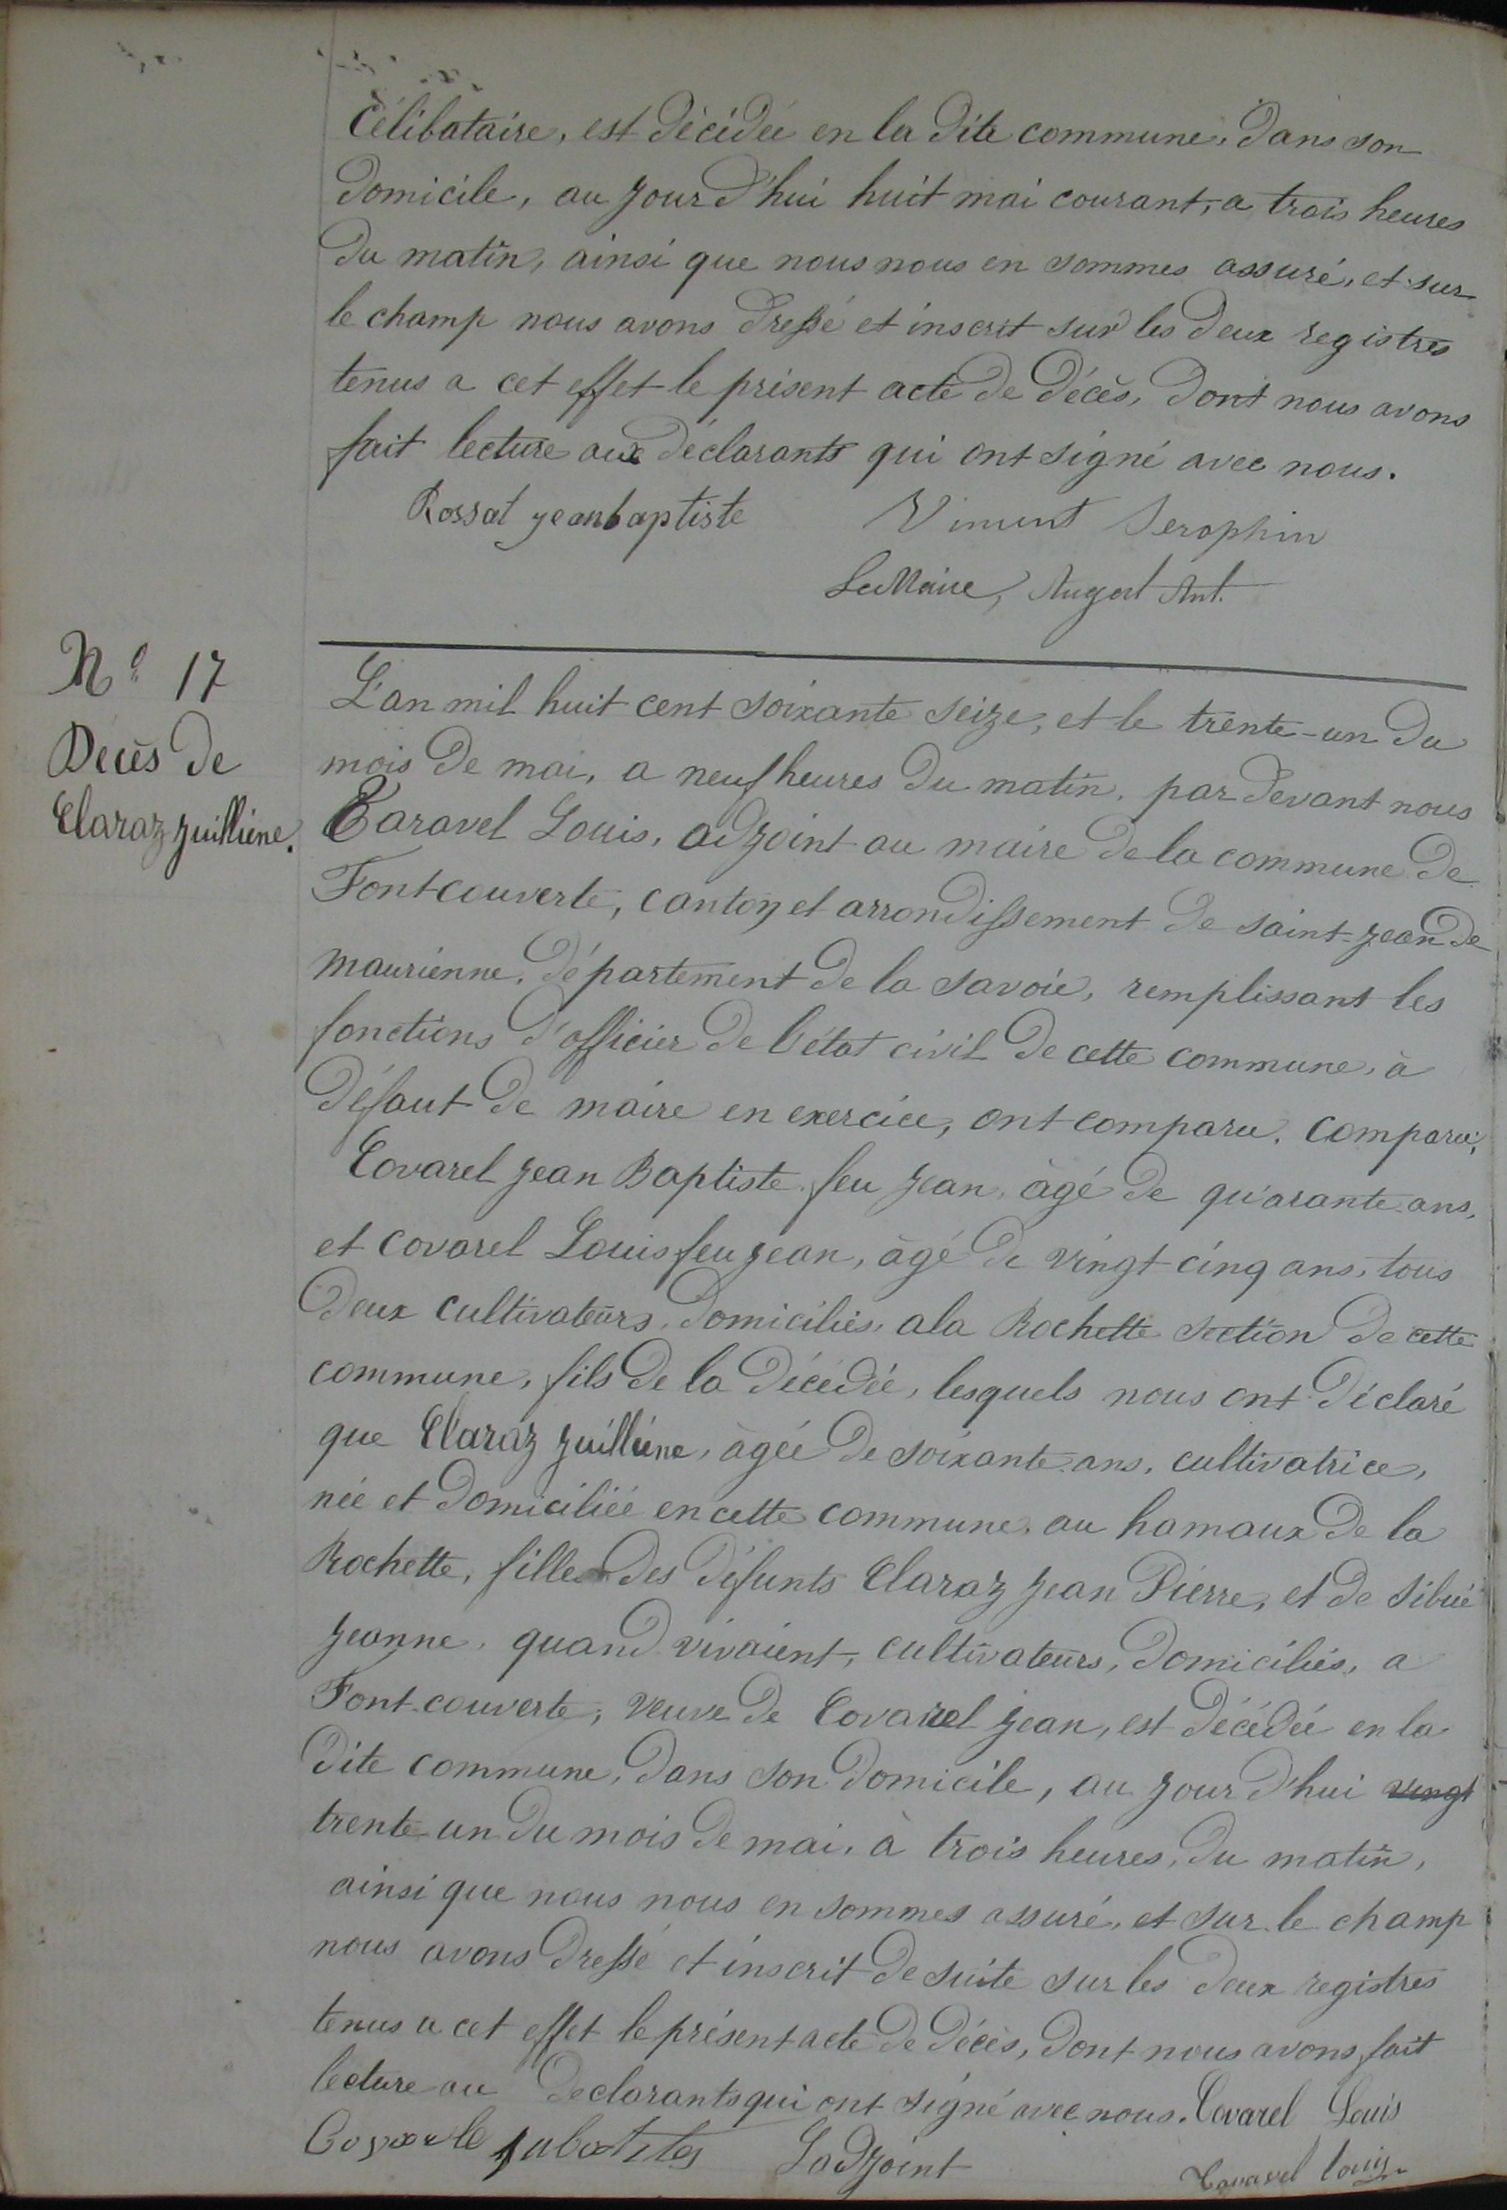 Célibataire, est décédée en la dite commune, dans son
domicile, au jour d'hui huit mai courant, a trois heures
du matin, ainsi que nous nous en sommes assuré, et sur
le champ nous avons dressé et inscrit sur les deux registres
tenus a cet effet le présent acte de décès, dont nous avons
fait lecture aux déclarants qui ont signé avec nous.
Rossat jeanbaptiste Vincent Seraphin
Le Maire, Augert Ant.
N° 17
Décès de
Claraz juilliene.
L'an mil huit cent soixante seize, et le trente-un du
mois de mai, a neuf heures du matin, par devant nous
Taravel Louis, adjoint au maire de la commune de
Fontcouverte, canton et arrondissement de saint-jean de
maurienne, département de la savoie, remplissant les
fonctions d'officier de l'état civil de cette commune, à
défaut de maire en exercice, ont comparu. comparu,
Covarel jean Baptiste feu jean, âgé de quarante ans,
et covarel Louis feu jean, âgé de vingt cinq ans, tous
deux cultivateurs, domiciliés, a la Rochette section de cette
commune, fils de la décédée, lesquels nous ont déclaré
que Claraz juilliene, âgée de soixante ans, cultivatrice,
née et domiciliée en cette commune, au hamaux de la
Rochette, fille des défunts Claraz jean Pierre, et de Sibué
jeanne, quand vivaient, cultivateurs, domiciliés, a
Font couverte, veuve de Covarel jean, est décédée en la
dite commune, dans son domicile, au jour d'hui vingt
trente un du mois de mai, à trois heures, du matin,
ainsi que nous nous en sommes assuré, et sur le champ
nous avons dressé et inscrit de suite sur les deux registres
tenus a cet effet le présent acte de décès, dont nous avons fait
lecture au declarants qui ont signé avec nous. Covarel Louis
L'adjoint Taravel louis